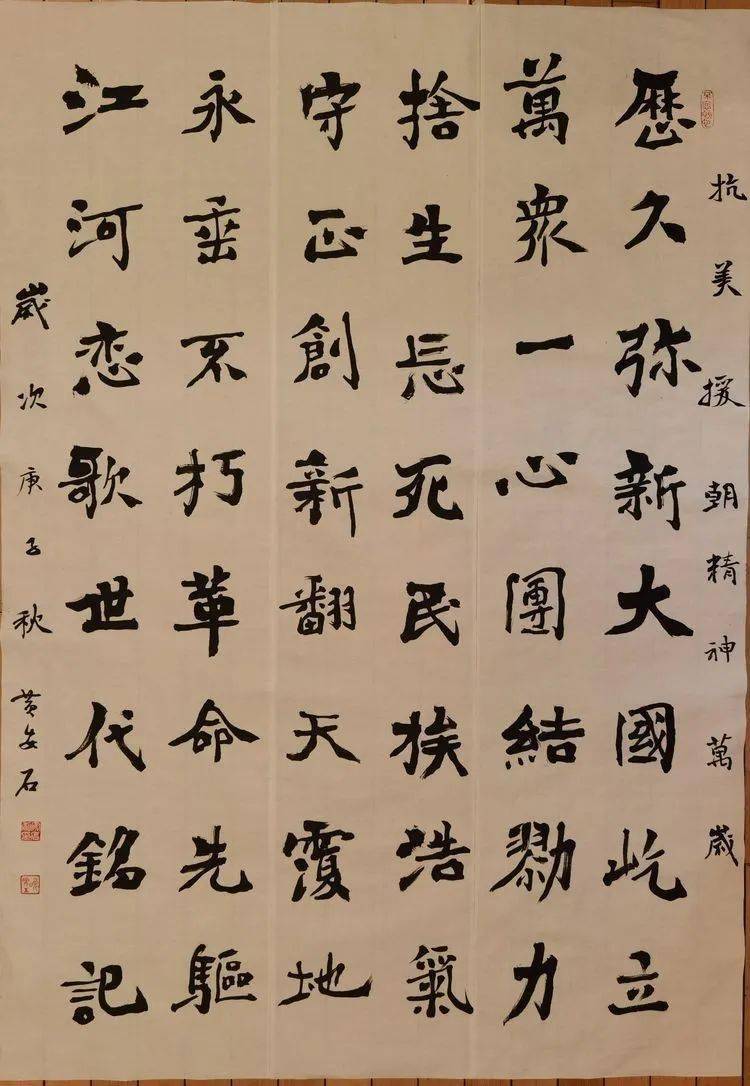 抗美援朝精神萬歲
歷久弥新大國屹立
萬衆一心團結勠力
捨生忘死民族浩氣
守正創新翻天覆地
永垂不朽革命先驅
江河恋歌世代銘記
歲次庚子秋黄安石